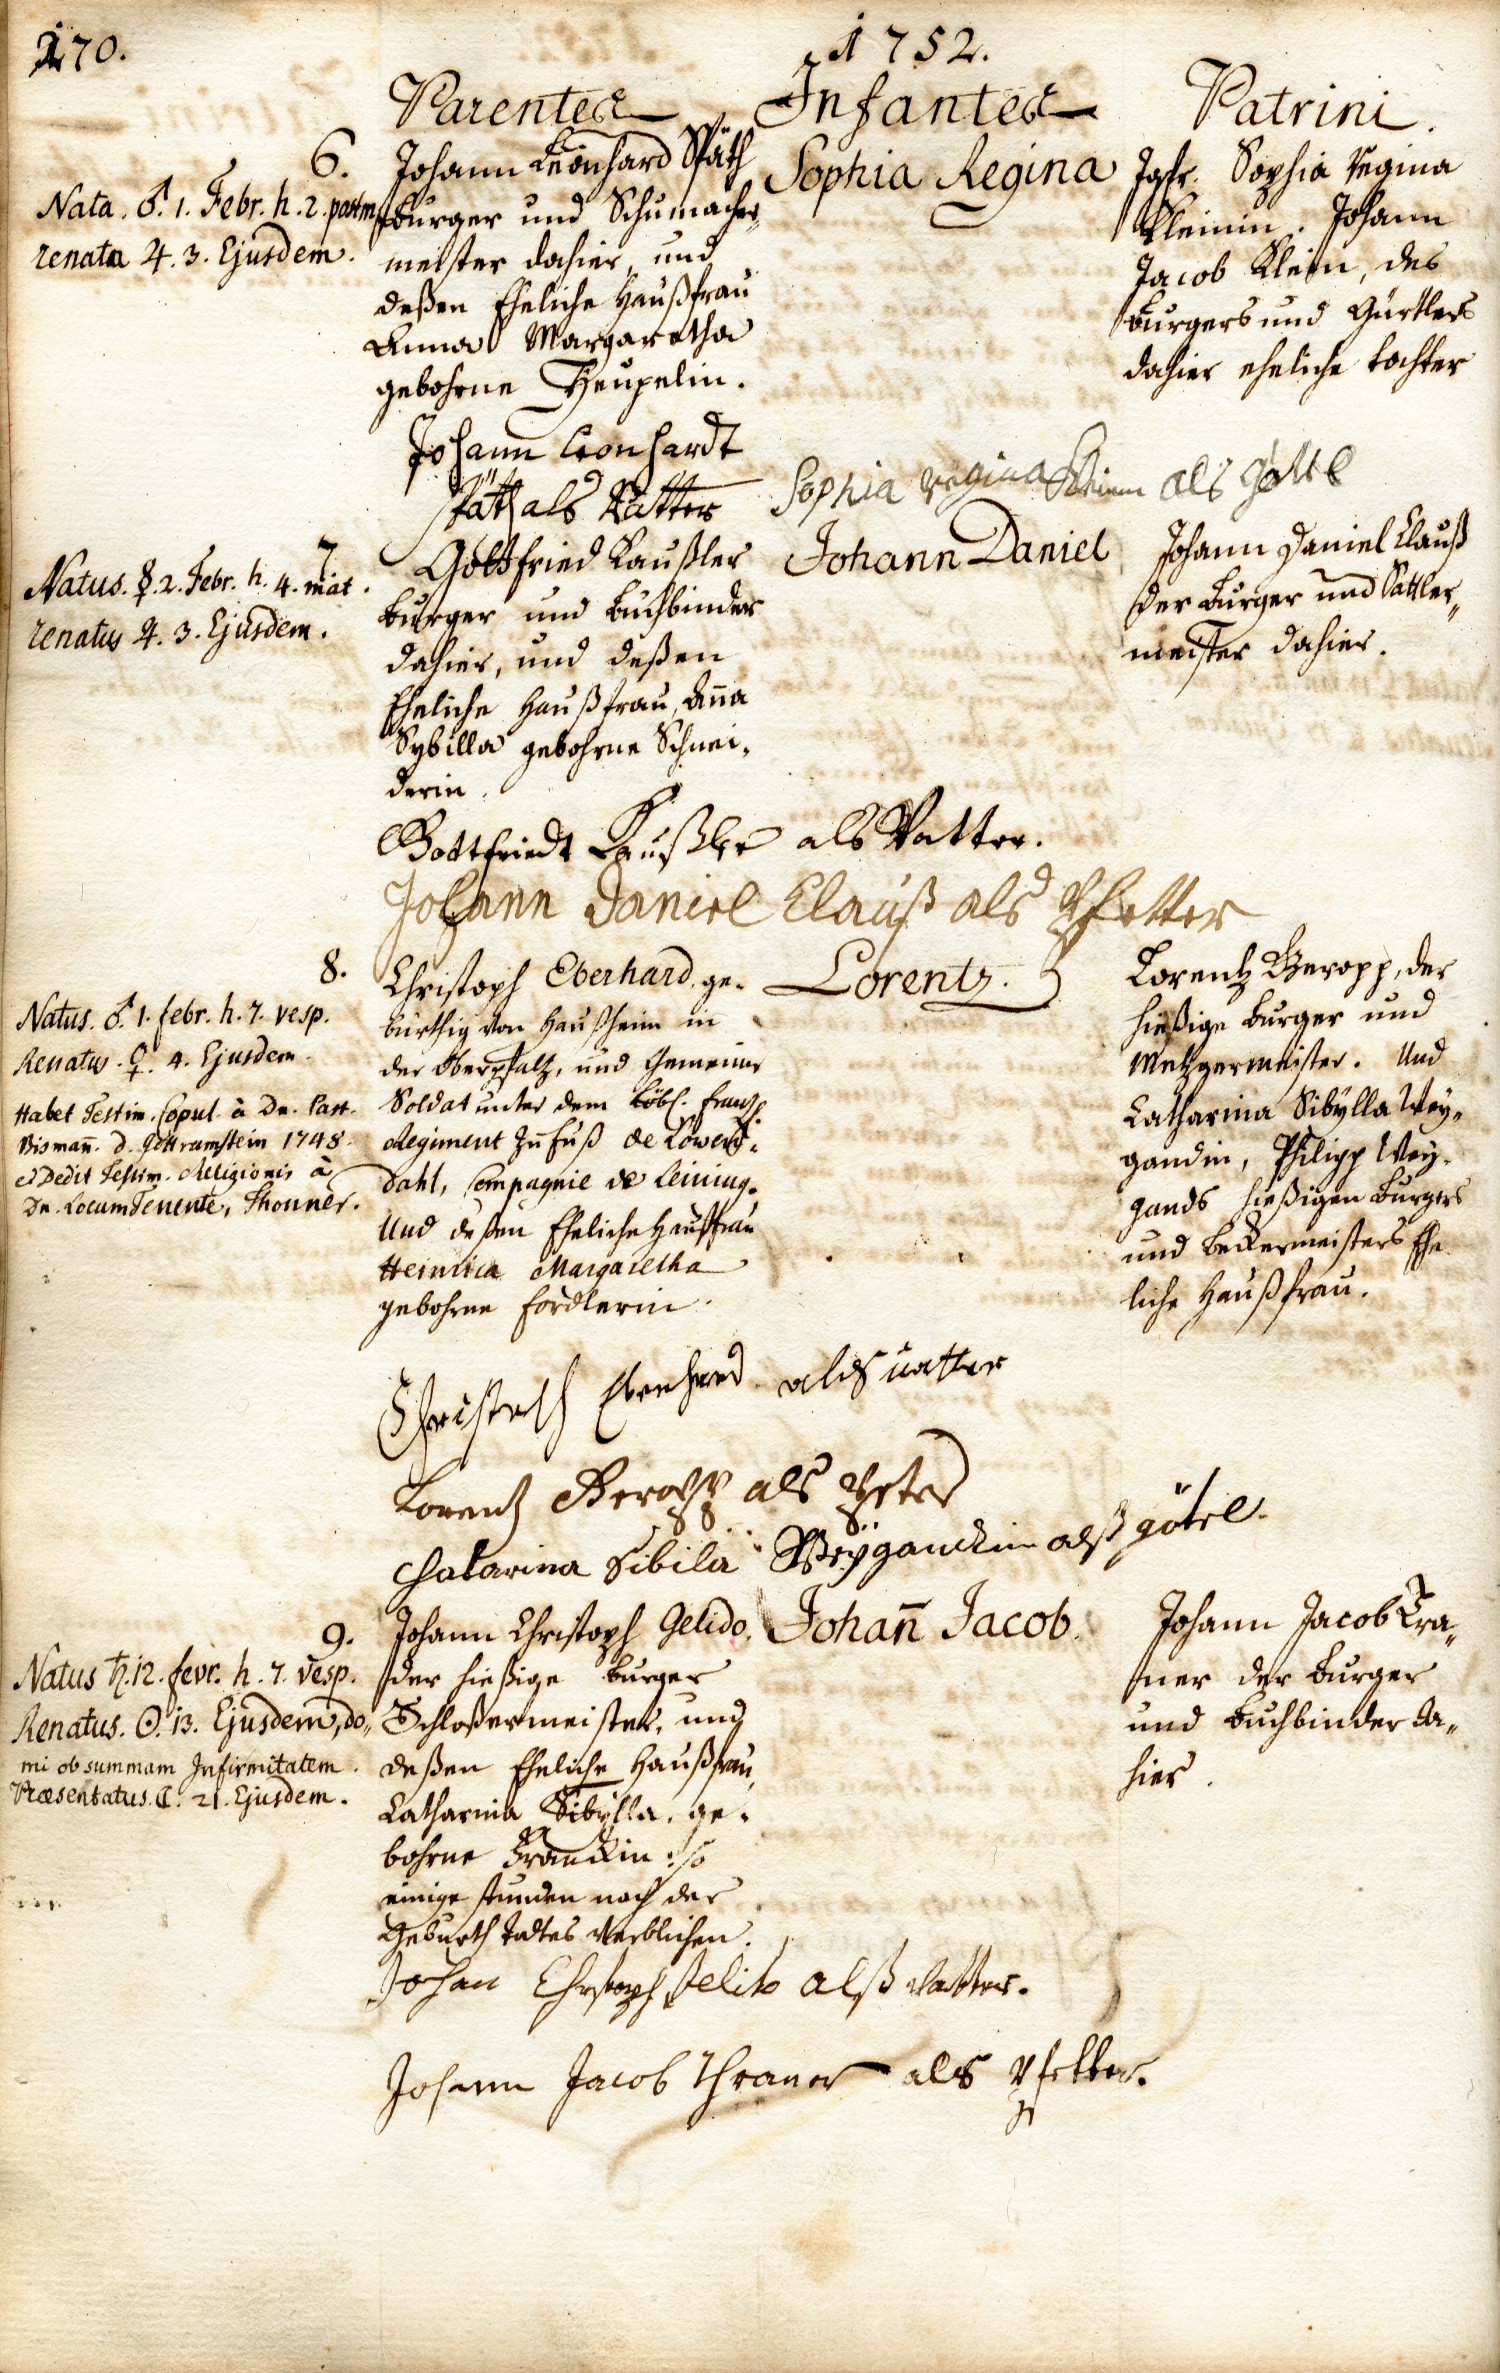 170.
1752.
Parentes Infantes Patrini.
6.
Nata. ♂. 1. Febr. h. 2. postm.
renata ♃. 3. Ejusdem.
Johann Leonhard Späth
burger und Schumacher-
meister dahier, und
deßen Eheliche Haußfrau
Anna Margaretha
gebohrne Heupelin.
Sophia Regina
Jgfr. Sophia Regina
Kleinin. Johann
Jacob Klein, des
burgers und Gürtlers
dahier eheliche tochter
Johann Leonhardt
Späth als Vatter
Sophia Regina als götte
7.
Natus. ☿. 2. Febr. h. 4. mat.
renatus ♃. 3. Ejusdem.
Gottfried Kaußler
burger und buchbinder
dahier, und deßen
Eheliche Haußfrau, Aña
Sybilla gebohrne Schnei-
derin.
Johann Daniel
Johann Daniel Clauß
der burger und Sattler-
meister dahier.
Gottfriedt Kaußler als Vatter.
Johann Daniel Clauß als Pfetter
8.
Natus. ♂. 1. febr. h. 7. vesp.
Renatus. ♀. 4. Ejusdem.
Habet Testim. Copul. à Dn. Past.
Bismañ. d. 1748.
et Dedit Testim. Religionis à
Dn. LocumTenente, Thonner.
Christoph Eberhard, ge-
bürthig von Haußheim in
der Oberpfaltz, und Gemeiner
Soldat unter dem Löbl. Frantz.
Regiment zu Fuß de Löwen-
dahl, Compagnie de Leining.
Und deßen Eheliche Haußfrau
Heinrica Margaretha
gebohrne Fördlerin.
Lorentz.
Lorentz Beropp, der
hießige burger und
Metzgermeister. Und
Catharina Sibylla Wey-
gandin, Philipp Wey-
gands hießigen burgers
und beckermeisters Ehe
liche Haußfrau.
Christoph Eberhard als vatter
Lorentz Beropp als Peter
Chatarina Sibila Weÿgandin alß götel.
9.
Natus ♄. 12. fevr. h. 7. vesp.
Renatus. ☉. 13. Ejusdem, do-
mi ob summam Infirmitatem.
Præsentatus. ☾. 21. Ejusdem.
Johann Christoph Gelido,
der hießige burger
Schloßermeister, und
deßen Eheliche Haußfrau,
Catharina Sibÿlla, ge-
bohrne Franckin: so
einige stunden nach der
Geburth Todtes verblichen.
Johañ Jacob.
Johann Jacob Tra-
ner der burger
und buchbinder da-
hier.
Johan Christoph Jelito alß Vatter.
Johann Jacob Thraner als Pfetter.